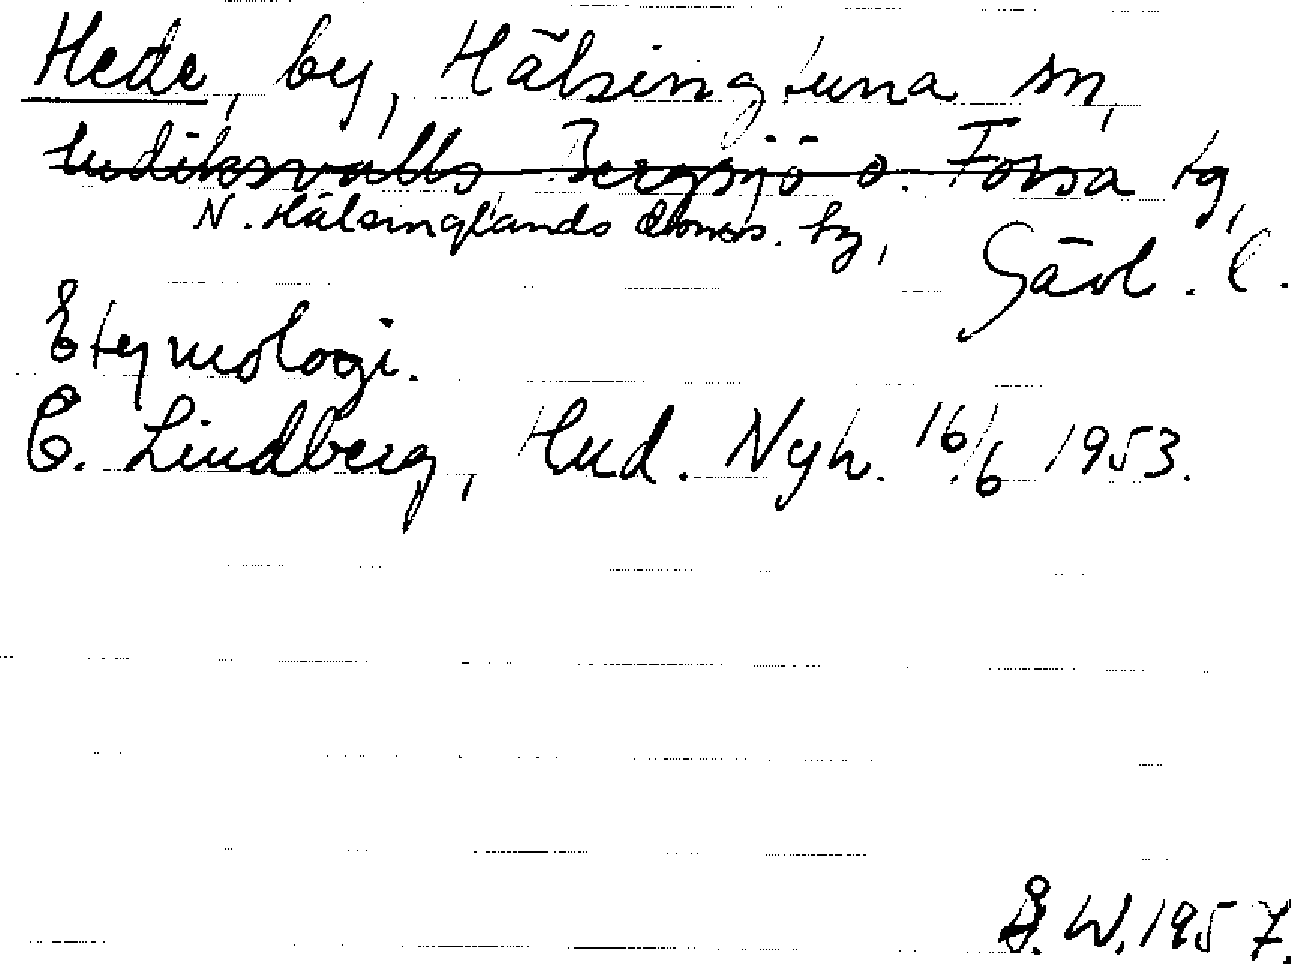 Hede, by, Hälsingtuna sn,
Hudiksvalls Bergsjö o. Forsa tg,
N. Hälsinglands doms. tg, Gävl. l.
Etymologi.
E. Lindberg, Hud. Nyh. 16/6 1953.
G. W. 1957.